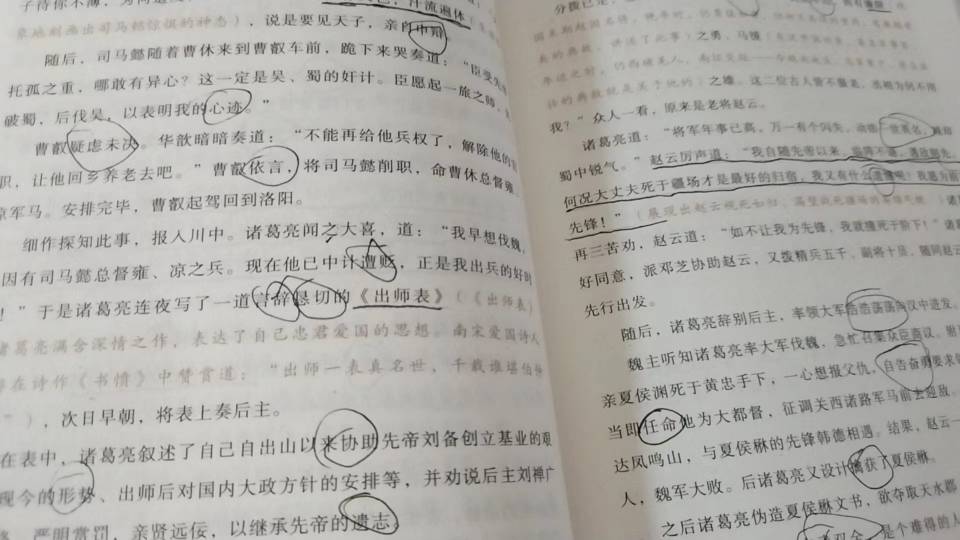 子待你不薄，
汗流遍体
象地刻画出司马懿惊惧的神态），说是要见天子，亲自申辩
随后，司马懿随着曹休来到曹叡车前，跪下来哭奏道：“臣受先
托孤之重，哪敢有异心？这一定是吴、蜀的奸计。臣愿起一旅之师，
破蜀，后伐吴，以表明我的心迹。”
曹叡疑虑未决。华歆暗暗奏道：“不能再给他兵权了，解除他的
职，让他回乡养老去吧。”曹叡依言，将司马懿削职，命曹休总督雍、
凉军马。安排完毕，曹叡起驾回到洛阳。
细作探知此事，报入川中。诸葛亮闻之大喜，道：“我早想伐魏，
因有司马懿总督雍、凉之兵。现在他已中计遭贬，正是我出兵的好时
！”于是诸葛亮连夜写了一道言辞恳切的《出师表》（《出师表》
诸葛亮满含深情之作，表达了自己忠君爱国的思想，南宋爱国诗人
在诗作《书愤》中赞赏道：“出师一表真名世，千载谁堪伯仲
”），次日早朝，将表上奏后主。
在表中，诸葛亮叙述了自己自出山以来协助先帝刘备创立基业的艰
现今的形势、出师后对国内大政方针的安排等，并劝说后主刘禅广
严明赏罚，亲贤远佞，以继承先帝的遗志。
分拨已定，
之勇，马援
之雄，这二位古人皆不服老，丞相为何不用
我？”众人一看，原来是老将赵云。
诸葛亮道：“将军年事已高，万一有个闪失，动摇一世英名，减却
蜀中锐气。”赵云厉声道：“我自随先帝以来，临阵不退，遇敌则先。
何况大丈夫死于疆场才是最好的归宿，我又有什么遗憾呢！我愿为前
先锋！”（展现出赵云视死如归、
再三苦劝，赵云道：“如不让我为先锋，我就撞死于阶下！”诸葛
好同意，派邓芝协助赵云，又拨精兵五千，副将十员，随同赵云
先行出发。
随后，诸葛亮辞别后主，率领大军浩浩荡荡向汉中进发。
魏主听知诸葛亮率大军伐魏，急忙召集众臣商议。驸
亲夏侯渊死于黄忠手下，一心想报父仇，自告奋勇要求
当即任命他为大都督，征调关西诸路军马前去迎敌。
达凤鸣山，与夏侯楙的先锋韩德相遇。结果，赵云一
人，魏军大败。后诸葛亮又设计擒获了夏侯楙。
之后诸葛亮伪造夏侯楙文书，欲夺取天水郡
是个难得的人